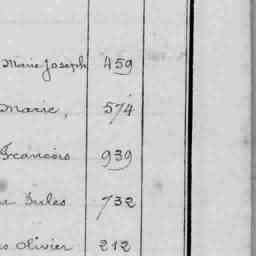 Marie Joseph 459
Marie, 574
François 939
Jules 732
Olivier 212